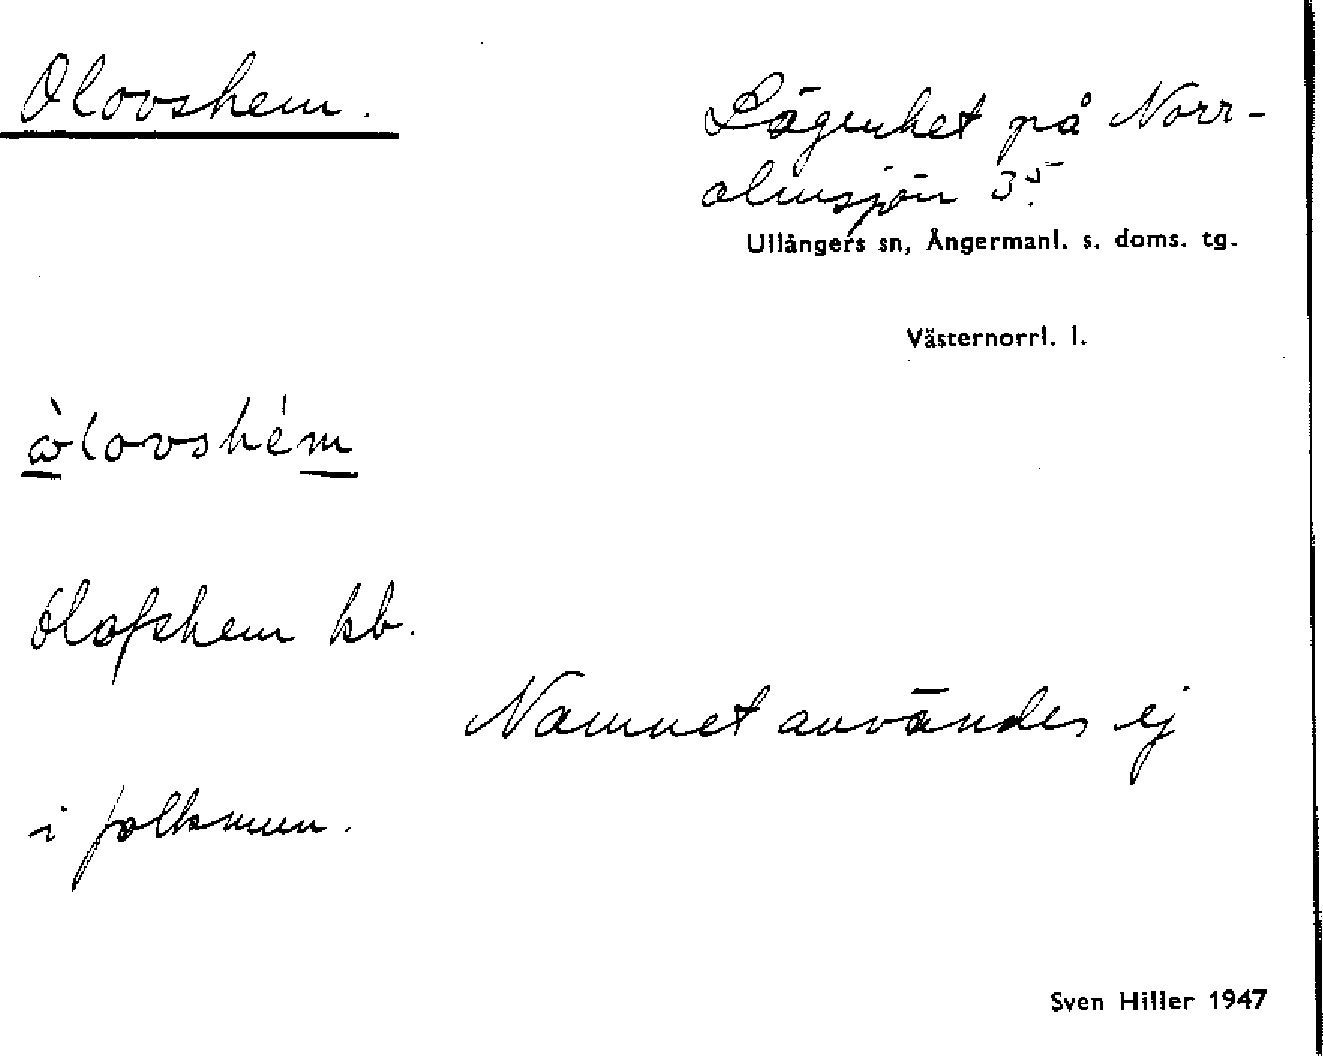 Olovshem.
Lägenhet på Norr-
almsjön 3⁵.
Ullångers sn, Ångermanl. s. doms. tg.
Västernorrl. l.
ὼlovshém
Olofshem kb.
Namnet användes ej
i folkmun.
Sven Hiller 1947